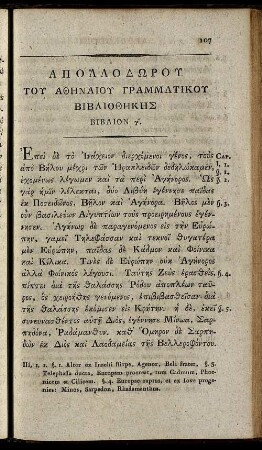 107
ΑΠΟΛΛΟΔΩΡΟΥ
ΤΟΥ ΑΘΗΝΑΙΟΥ ΓΡΑΜΜΑΤΙΚΟΥ
ΒΙΒΛΙΟΘΗΚΗΣ
ΒΙΒΛΙΟΝ γ.
Ἐπεὶ δὲ τὸ Ἰνάχειον διερχόμενοι γένος, τοὺς Cap.
ἀπὸ Βήλου μέχρι τῶν Ἡρακλειδῶν δεδηλώκαμεν, I. 1.
ἐχομένως λέγωμεν καὶ τὰ περὶ Ἀγήνορος. Ὡς §. 1.
γὰρ ἡμῖν λέλεκται, δύο Λιβύη ἐγέννησε παῖδας §. 2.
ἐκ Ποσειδῶνος, Βῆλον καὶ Ἀγήνορα. Βῆλος μὲν §. 3.
οὖν βασιλεύων Αἰγυπτίων τοὺς προειρημένους ἐγέν-
νησεν. Ἀγήνωρ δὲ παραγενόμενος εἰς τὴν Εὐρώ-
πην, γαμεῖ Τηλέφασσαν καὶ τεκνοῖ θυγατέρα
μὲν Εὐρώπην, παῖδας δὲ Κάδμον καὶ Φοίνικα
καὶ Κίλικα. Τινὲς δὲ Εὐρώπην οὐκ Ἀγήνορος
ἀλλὰ Φοίνικος λέγουσι. Ταύτης Ζεὺς ἐρασθεὶς, §. 4.
πίπτει διὰ τῆς θαλάσσης Ῥόδου ἀποπλέων ταῦρος
, χειροήθης γενόμενος, ἐπιβιβασθεῖσαν διὰ
τῆς θαλάσσης ἐκόμισεν εἰς Κρήτην. ἡ δὲ, ἐκεῖ §. 5.
συνευνασθέντος αὐτῇ Διὸς, ἐγέννησε Μίνωα, Σαρ-
πηδόνα, Ῥαδάμανθυν. καθ᾽ Ὅμηρον δὲ Σαρπη-
δὼν ἐκ Διὸς καὶ Λαοδαμείας τῆς Βελλεροφόντου.
III, 1. 1. §. 1. Altor ex Inachi stirpe, Agenor, Beli frater, §. 3.
Telephassa ducta, Europam procreat, tum Cadmum, Phoe-
nicem et Cilicem. §. 4. Europae raptus, et ex Iove proge-
nies: Minos, Sarpedon, Rhadamanthus.